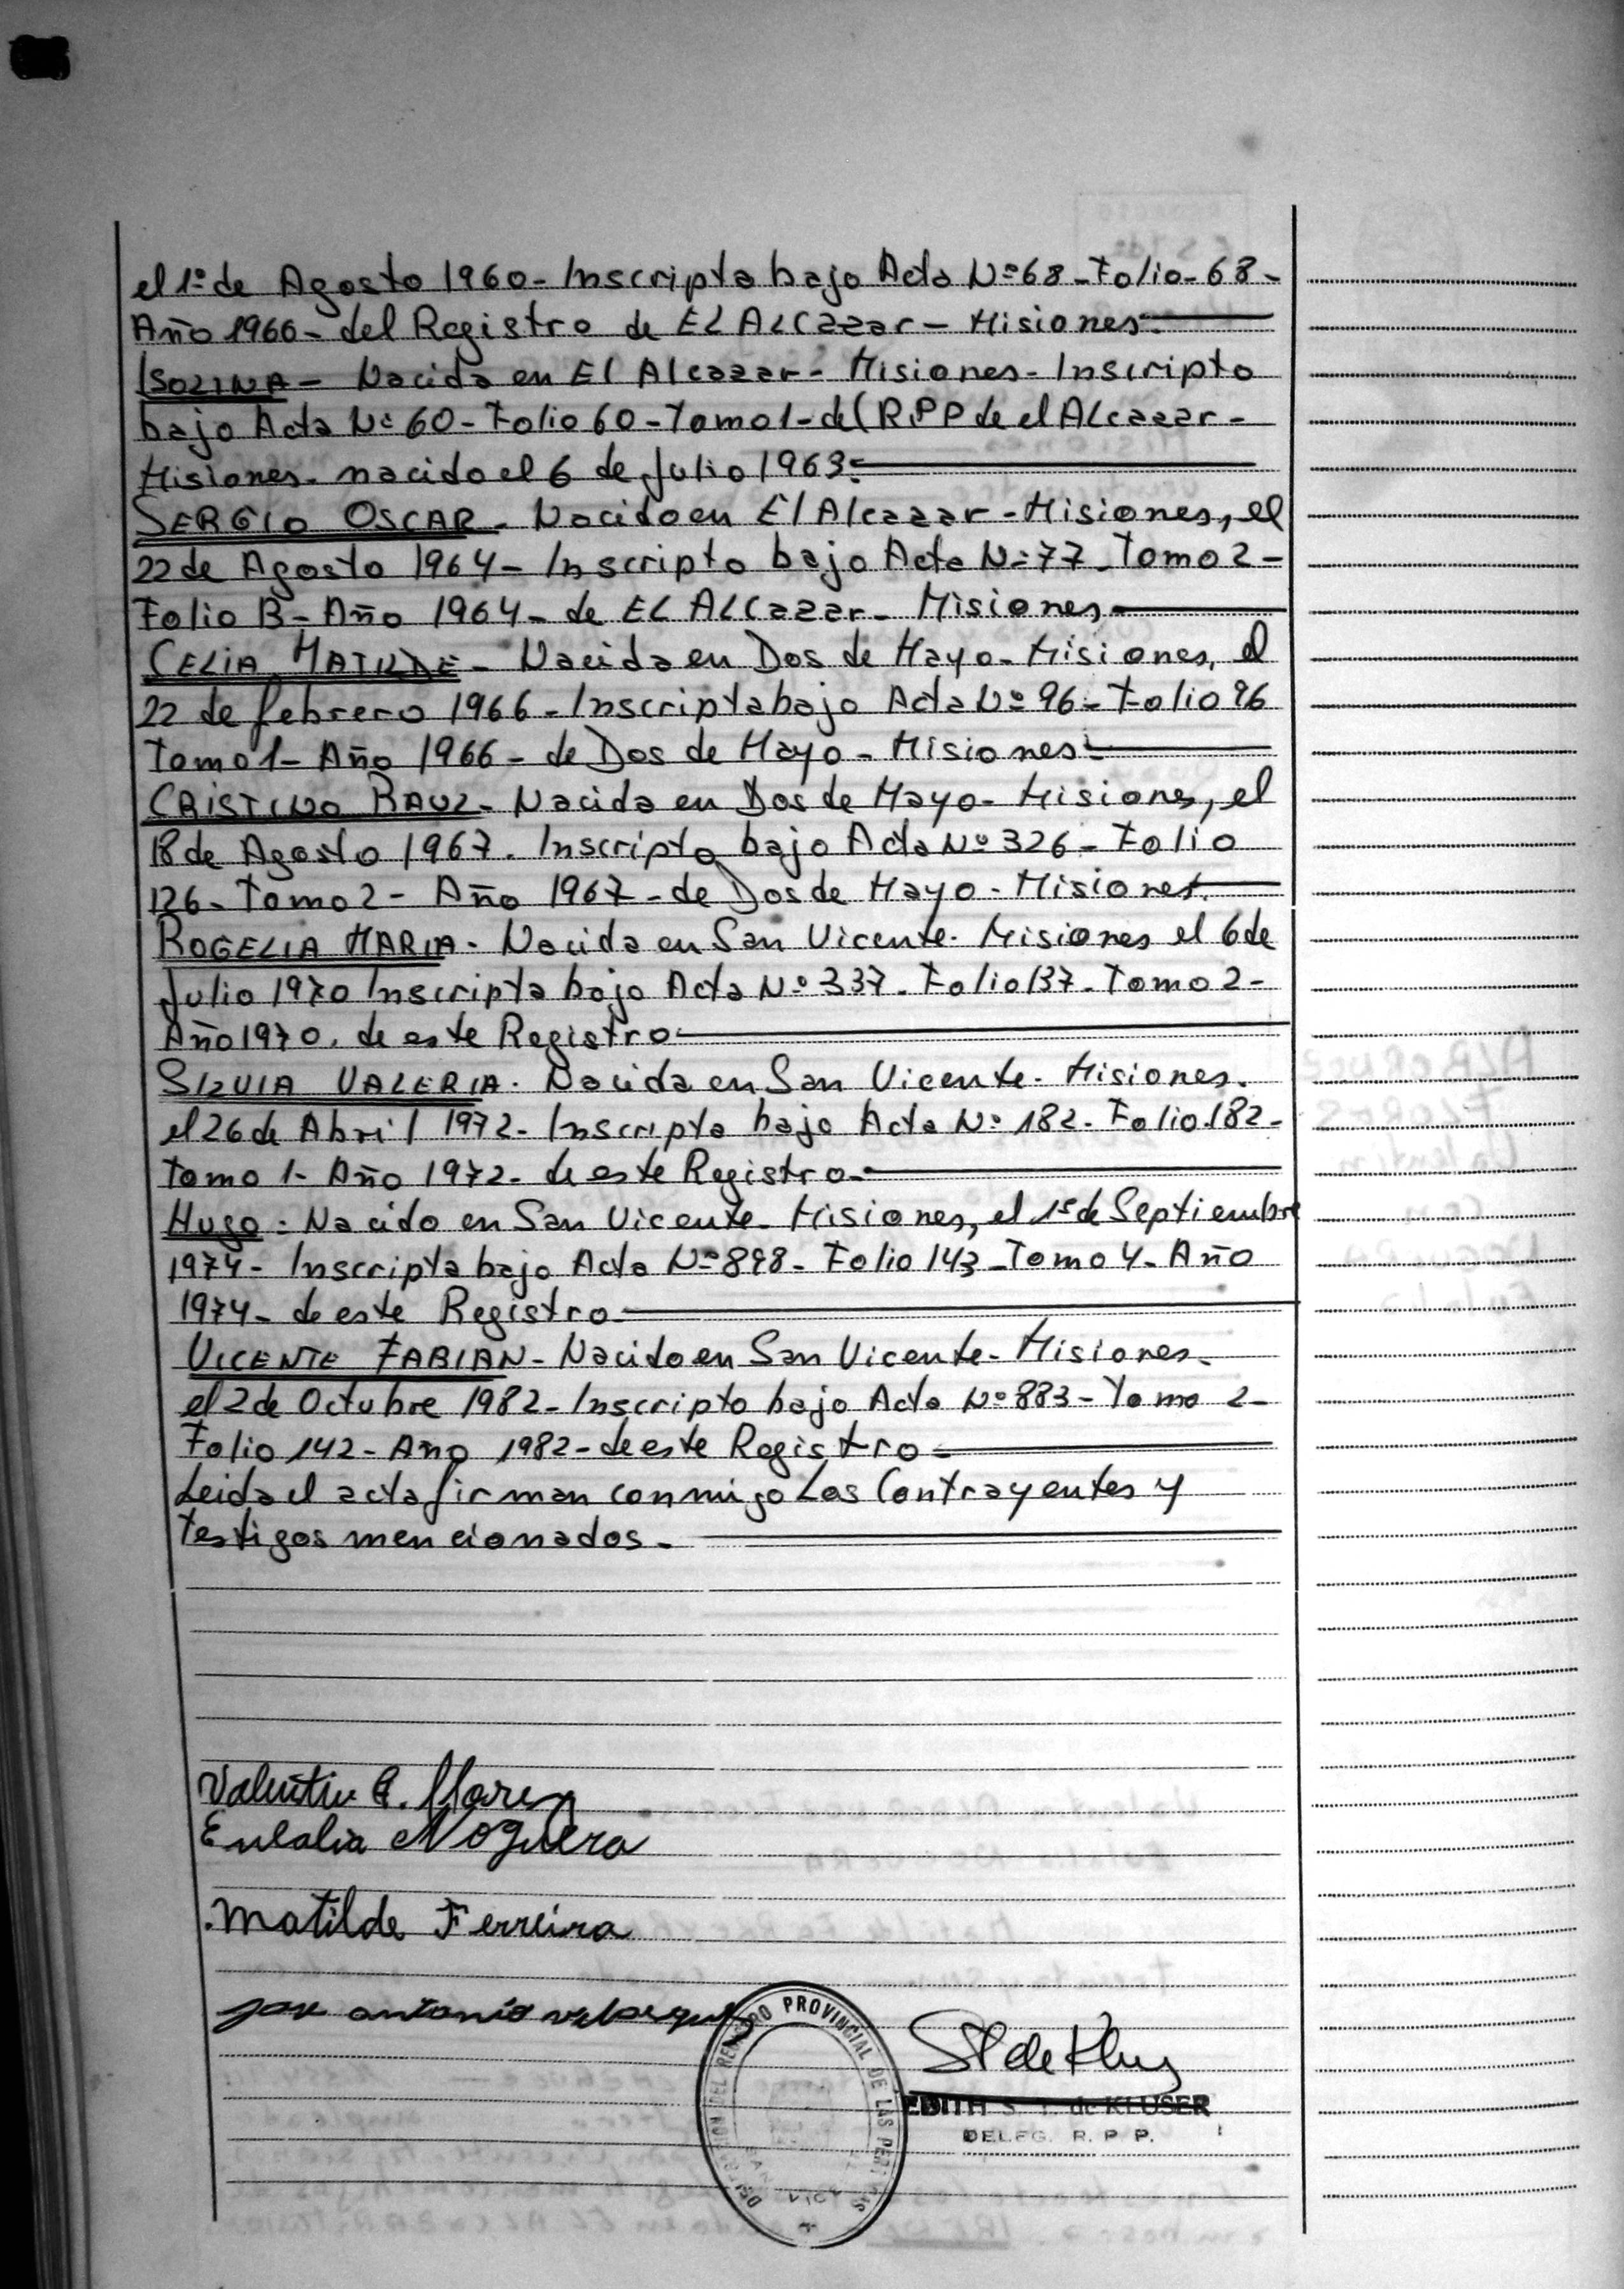 el 1º de Agosto 1960- Inscripta bajo Acta Nº 68- Folio- 68-
Año 1960- del Registro de EL ALCazar- Misiones-
ISOLINA- Nacida en El Alcazar- Misiones- Inscripto
bajo Acta Nº 60- Folio 60- Tomo 1- del R.P.P de el ALcazar-
Misiones- nacido el 6 de Julio 1963-
SERGIO OSCAR- Nacido en El Alcazar- Misiones, el
22 de Agosto 1964- Inscripto bajo Acta Nº 77- Tomo 2-
Folio B- Año 1964- de EL ALCazar- Misiones-
CELIA MATILDE- Nacida en Dos de Mayo- Misiones, el
22 de febrero 1966- Inscripta bajo Acta Nº 96- Folio 96
Tomo 1- Año 1966- de Dos de Mayo- Misiones-
CRISTINO RAUL- Nacida en Dos de Mayo- Misiones, el
18 de Agosto 1967. Inscripto bajo Acta Nº 326- Folio
126- Tomo 2- Año 1967- de Dos de Mayo- Misiones.
ROGELIA MARIA- Nacida en San Vicente- Misiones el 6 de
Julio 1970 Inscripta bajo Acta Nº 337- Folio 137- Tomo 2-
Año 1970. de este Registro-
SILVIA VALERIA- Nacida en San Vicente- Misiones.
el 26 de Abril 1972- Inscripta bajo Acta Nº 182- Folio 182-
Tomo 1- Año 1972- de este Registro-
HUGO- Nacido en San Vicente- Misiones, el 1º de Septiembre
1974- Inscripta bajo Acta Nº 898- Folio 143- Tomo 4- Año
1974- de este Registro-
VICENTE FABIAN- Nacido en San Vicente- Misiones-
el 2 de Octubre 1982- Inscripto bajo Acta Nº 883- Tomo 2-
Folio 142- Año 1982- de este Registro-
Leida el acta firman conmigo Los Contrayentes y
testigos mencionados-
Valentin A. Flores
Eulalia Noguera
Matilde Ferreira
jose antonio velasquez
DELEGACION DEL REGISTRO PROVINCIAL DE LAS PERSONAS
EDITH S. T. de KLUSER
DELEG. R. P. P.